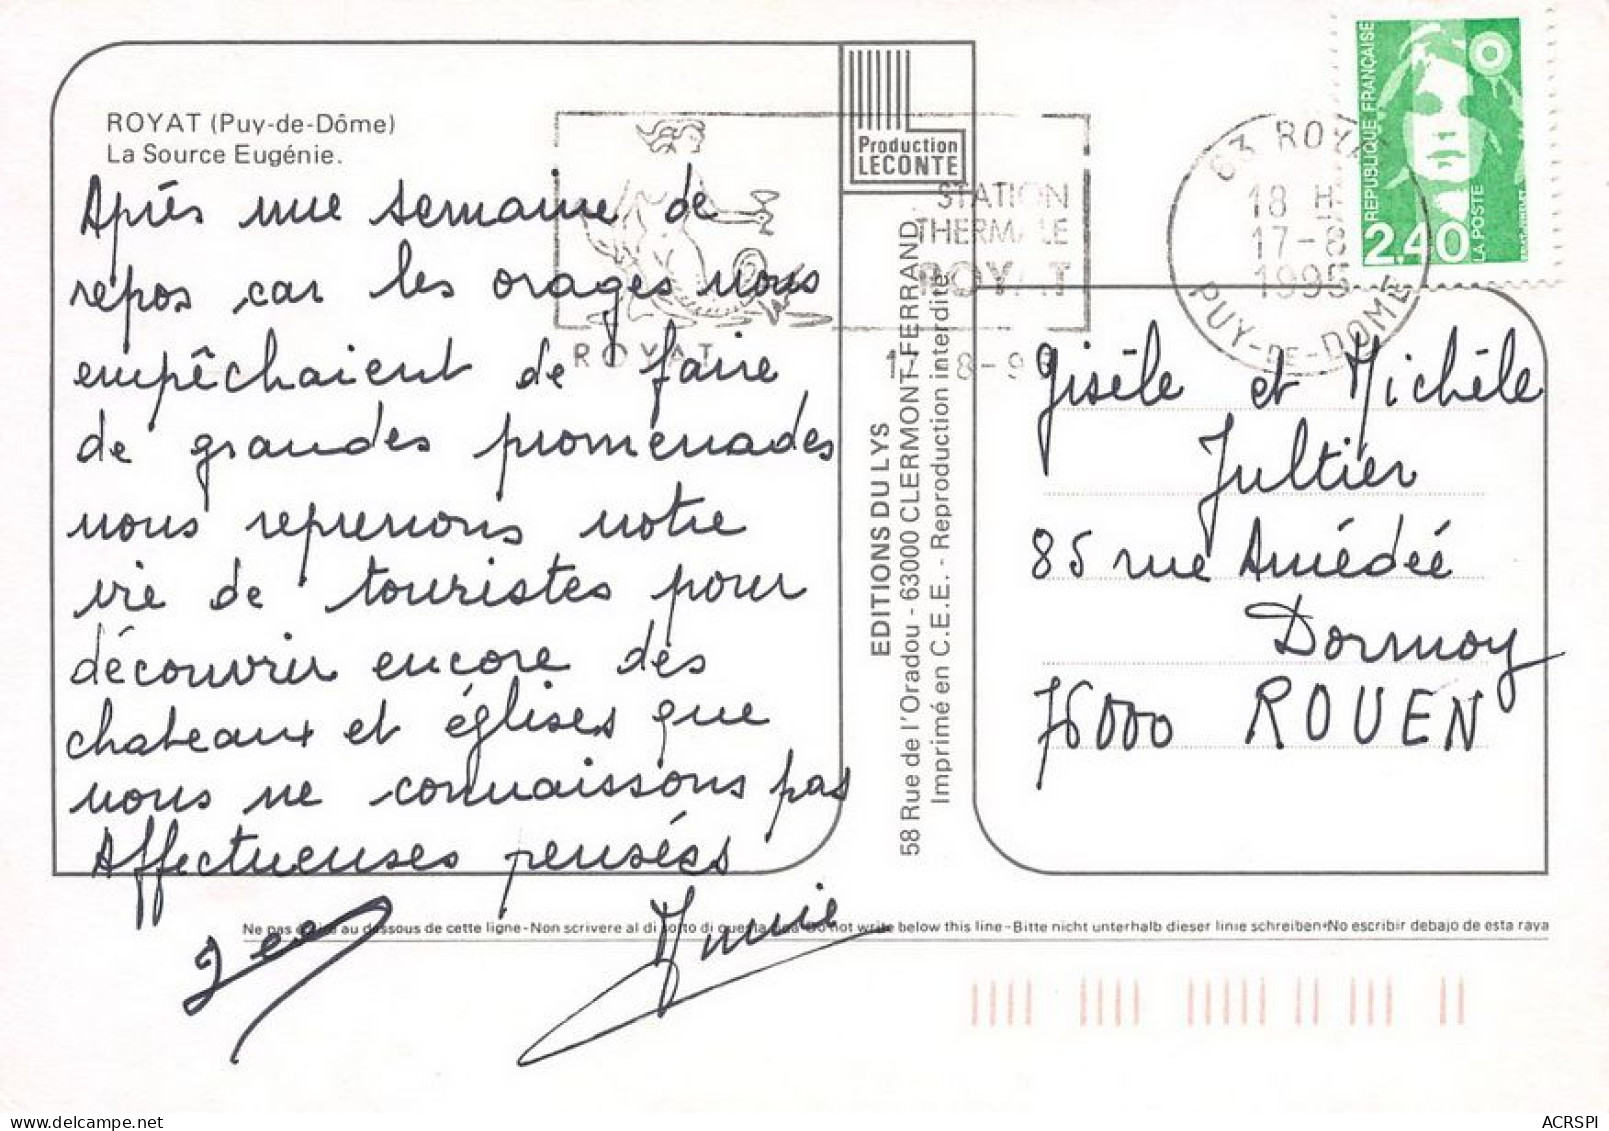 ROYAT (Puy-de-Dôme)
La Source Eugénie.
Après une semaine de
repos car les orages nous
empêchaient de faire
de grandes promenades
nous reprenons notre
vie de touristes pour
découvrir encore des
chateaux et églises que
nous ne connaissons pas
Affectueuses pensées
Production
LECONTE
STATION
THERMALE
ROYAT
ROYAT
EDITIONS DU LYS
58 Rue de l'Oradou - 63000 CLERMONT-FERRAND
Imprimé en C.E.E. - Reproduction interdite
63 ROYAT
18 H
17-8
1995
PUY-DE-DOME
REPUBLIQUE FRANÇAISE
2.40
LA POSTE
Gisèle et Michèle
Jultier
85 rue Amédée
Dormoy
76000 ROUEN
Ne pas écrire au dessous de cette ligne-Non scrivere al di sotto di questa linea-Do not write below this line-Bitte nicht unterhalb dieser linie schreiben-No escribir debajo de esta raya
ACRSPI